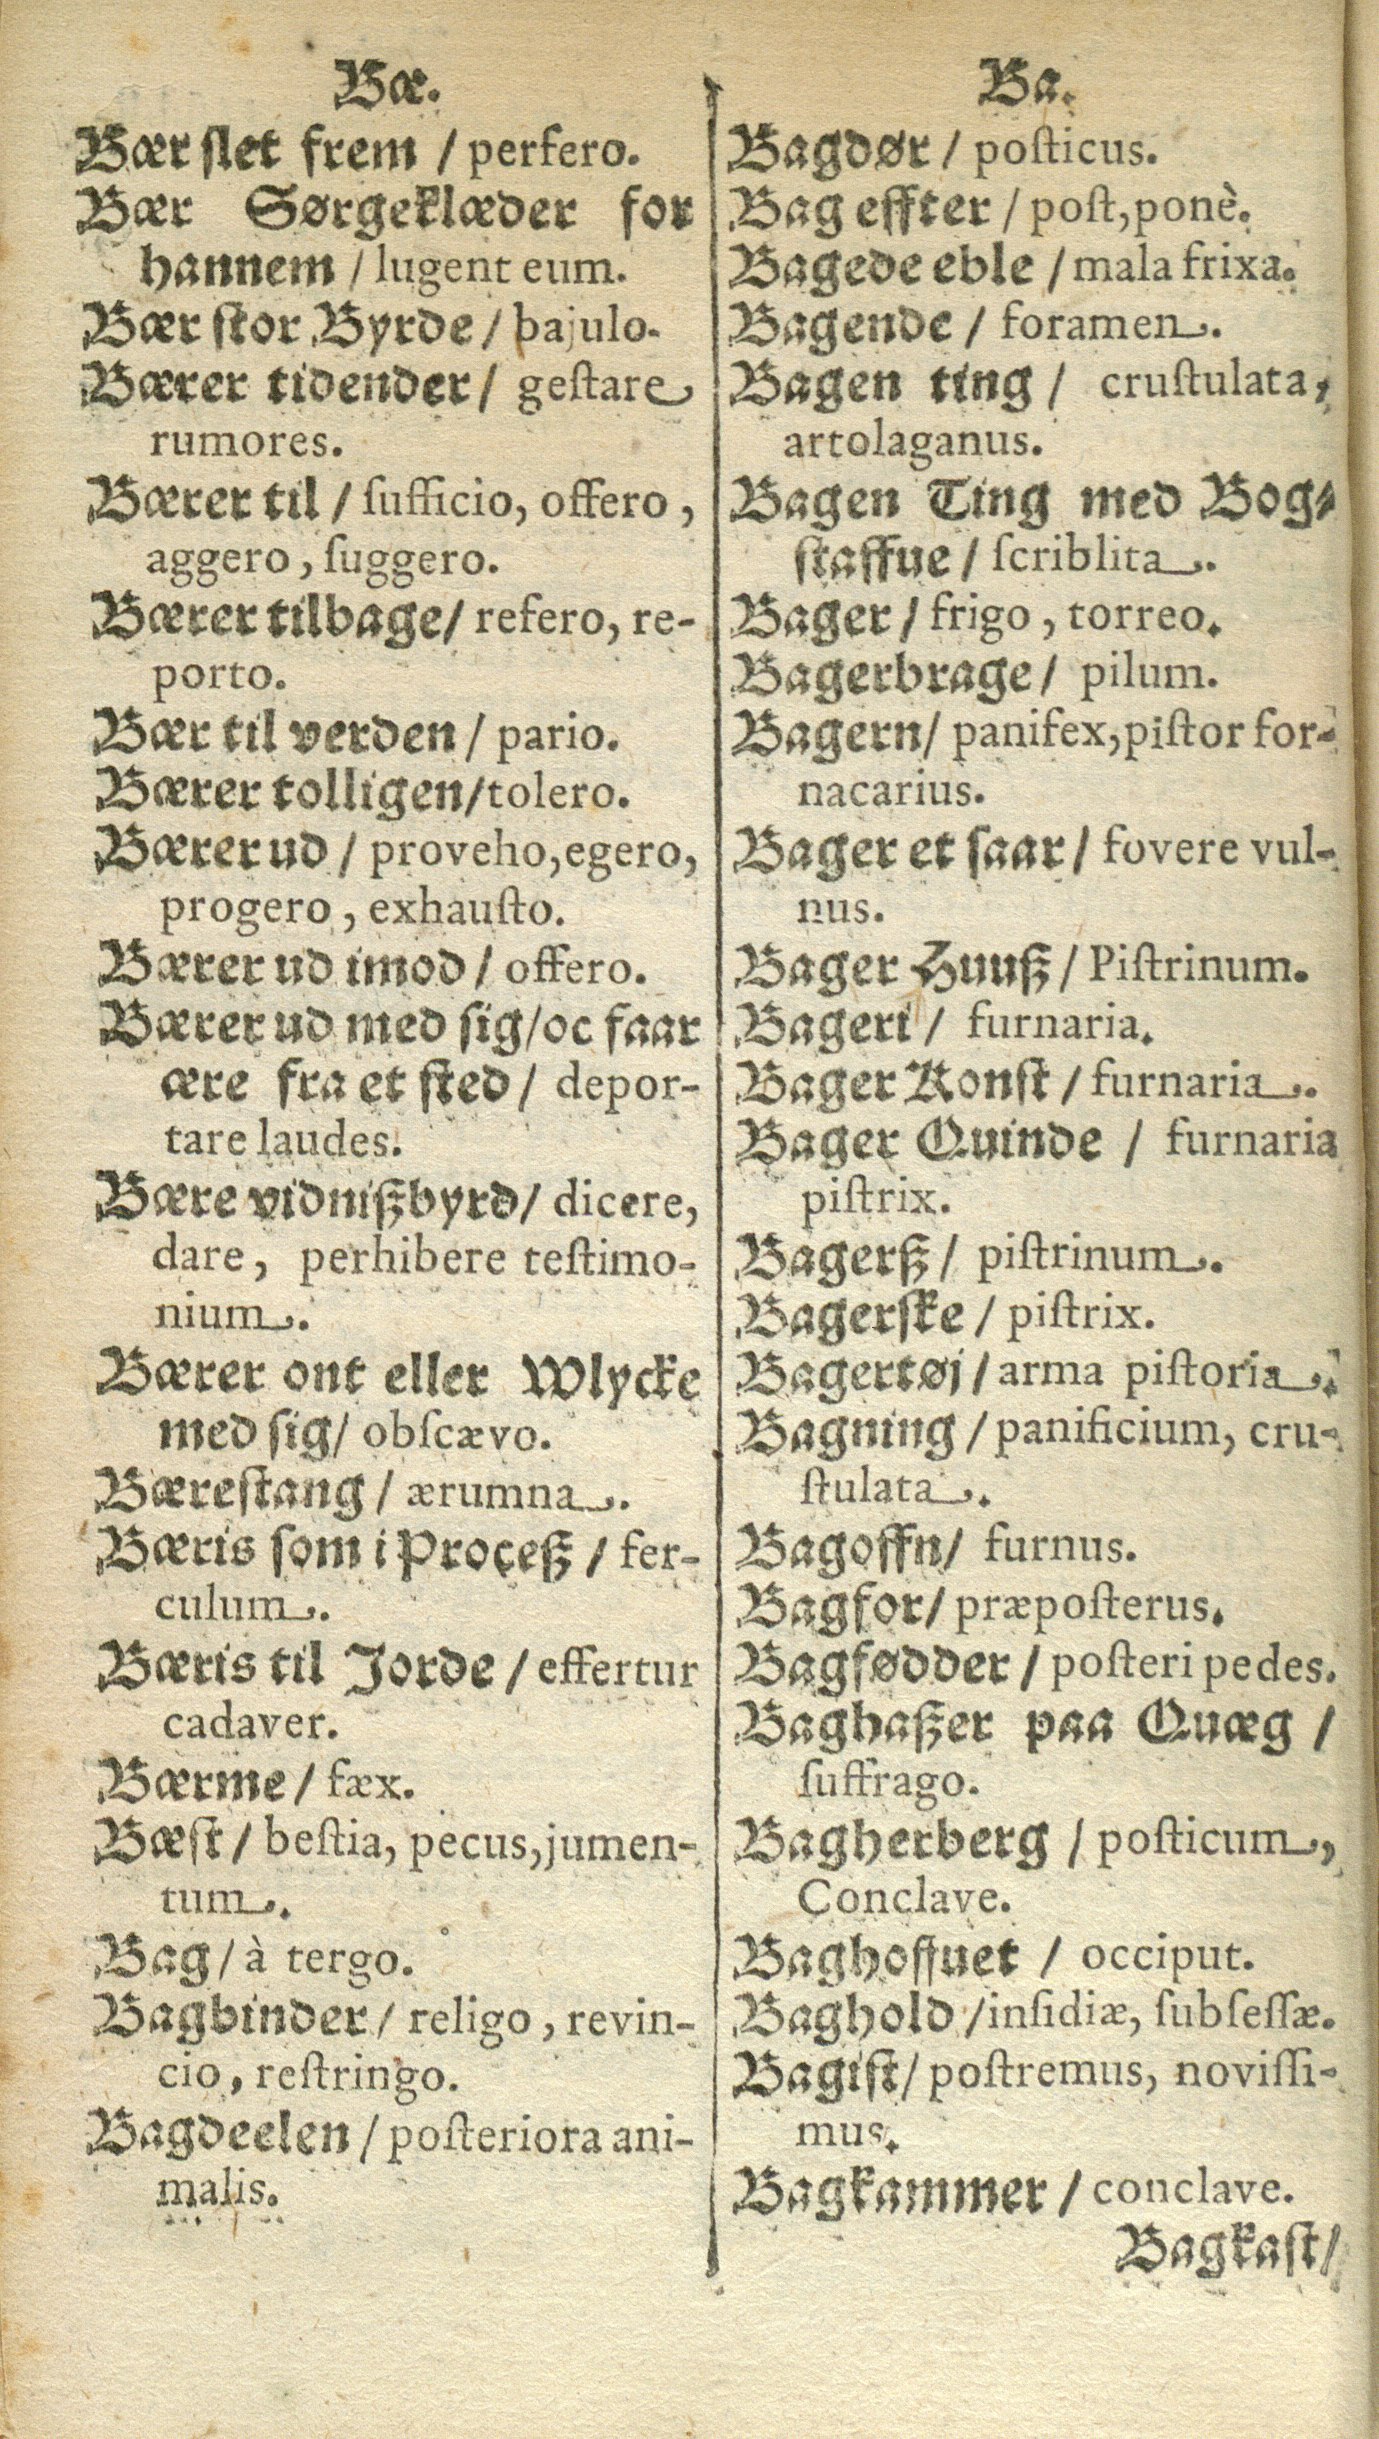 Bæ.
Bær ſlet frem / perfero.
Bær Sørgeklæder for
hannem / lugent eum.
Bær ſtor Byrde / bajulo.
Bærer tidender / geſtare
rumores.
Bærer til / ſufficio, offero,
aggero, ſuggero.
Bærer tilbage / refero, re-
porto.
Bær til verden / pario.
Bærer tolligen / tolero.
Bærer ud / proveho, egero,
progero, exhauſto.
Bærer ud imod / offero.
Bærer ud med ſig / oc faar
ære fra et ſted / depor-
tare laudes.
Bære vidnißbyrd / dicere,
dare, perhibere teſtimo-
nium.
Bærer ont eller Wlycke
med ſig / obſcævo.
Bæreſtang / ærumna.
Bæris ſom i Proceß / fer-
culum.
Bæris til Jorde / effertur
cadaver.
Bærme / fæx.
Bæſt / beſtia, pecus, jumen-
tum.
Bag / à tergo.
Bagbinder / religo, revin-
cio, reſtringo.
Bagdeelen / poſteriora ani-
malis.
Ba.
Bagdør / poſticus.
Bag effter / poſt, ponè.
Bagede eble / mala frixa.
Bagende / foramen.
Bagen ting / cruſtulata,
artolaganus.
Bagen Ting med Bog-
ſtaffue / ſcriblita.
Bager / frigo, torreo.
Bagerbrage / pilum.
Bagern / panifex, piſtor for-
nacarius.
Bager et ſaar / fovere vul-
nus.
Bager Huuß / Piſtrinum.
Bageri / furnaria.
Bager Konſt / furnaria.
Bager Quinde / furnaria
piſtrix.
Bagerß / piſtrinum.
Bagerſke / piſtrix.
Bagertøj / arma piſtoria.
Bagning / panificium, cru-
ſtulata.
Bagoffn / furnus.
Bagfor / præpoſterus.
Bagfødder / poſteri pedes.
Baghaßer paa Quæg /
ſuffrago.
Bagherberg / poſticum,
Conclave.
Baghoffuet / occiput.
Baghold / inſidiæ, ſubſeſſæ.
Bagiſt / poſtremus, noviſſi-
mus.
Bagkammer / conclave.
Bagkaſt /